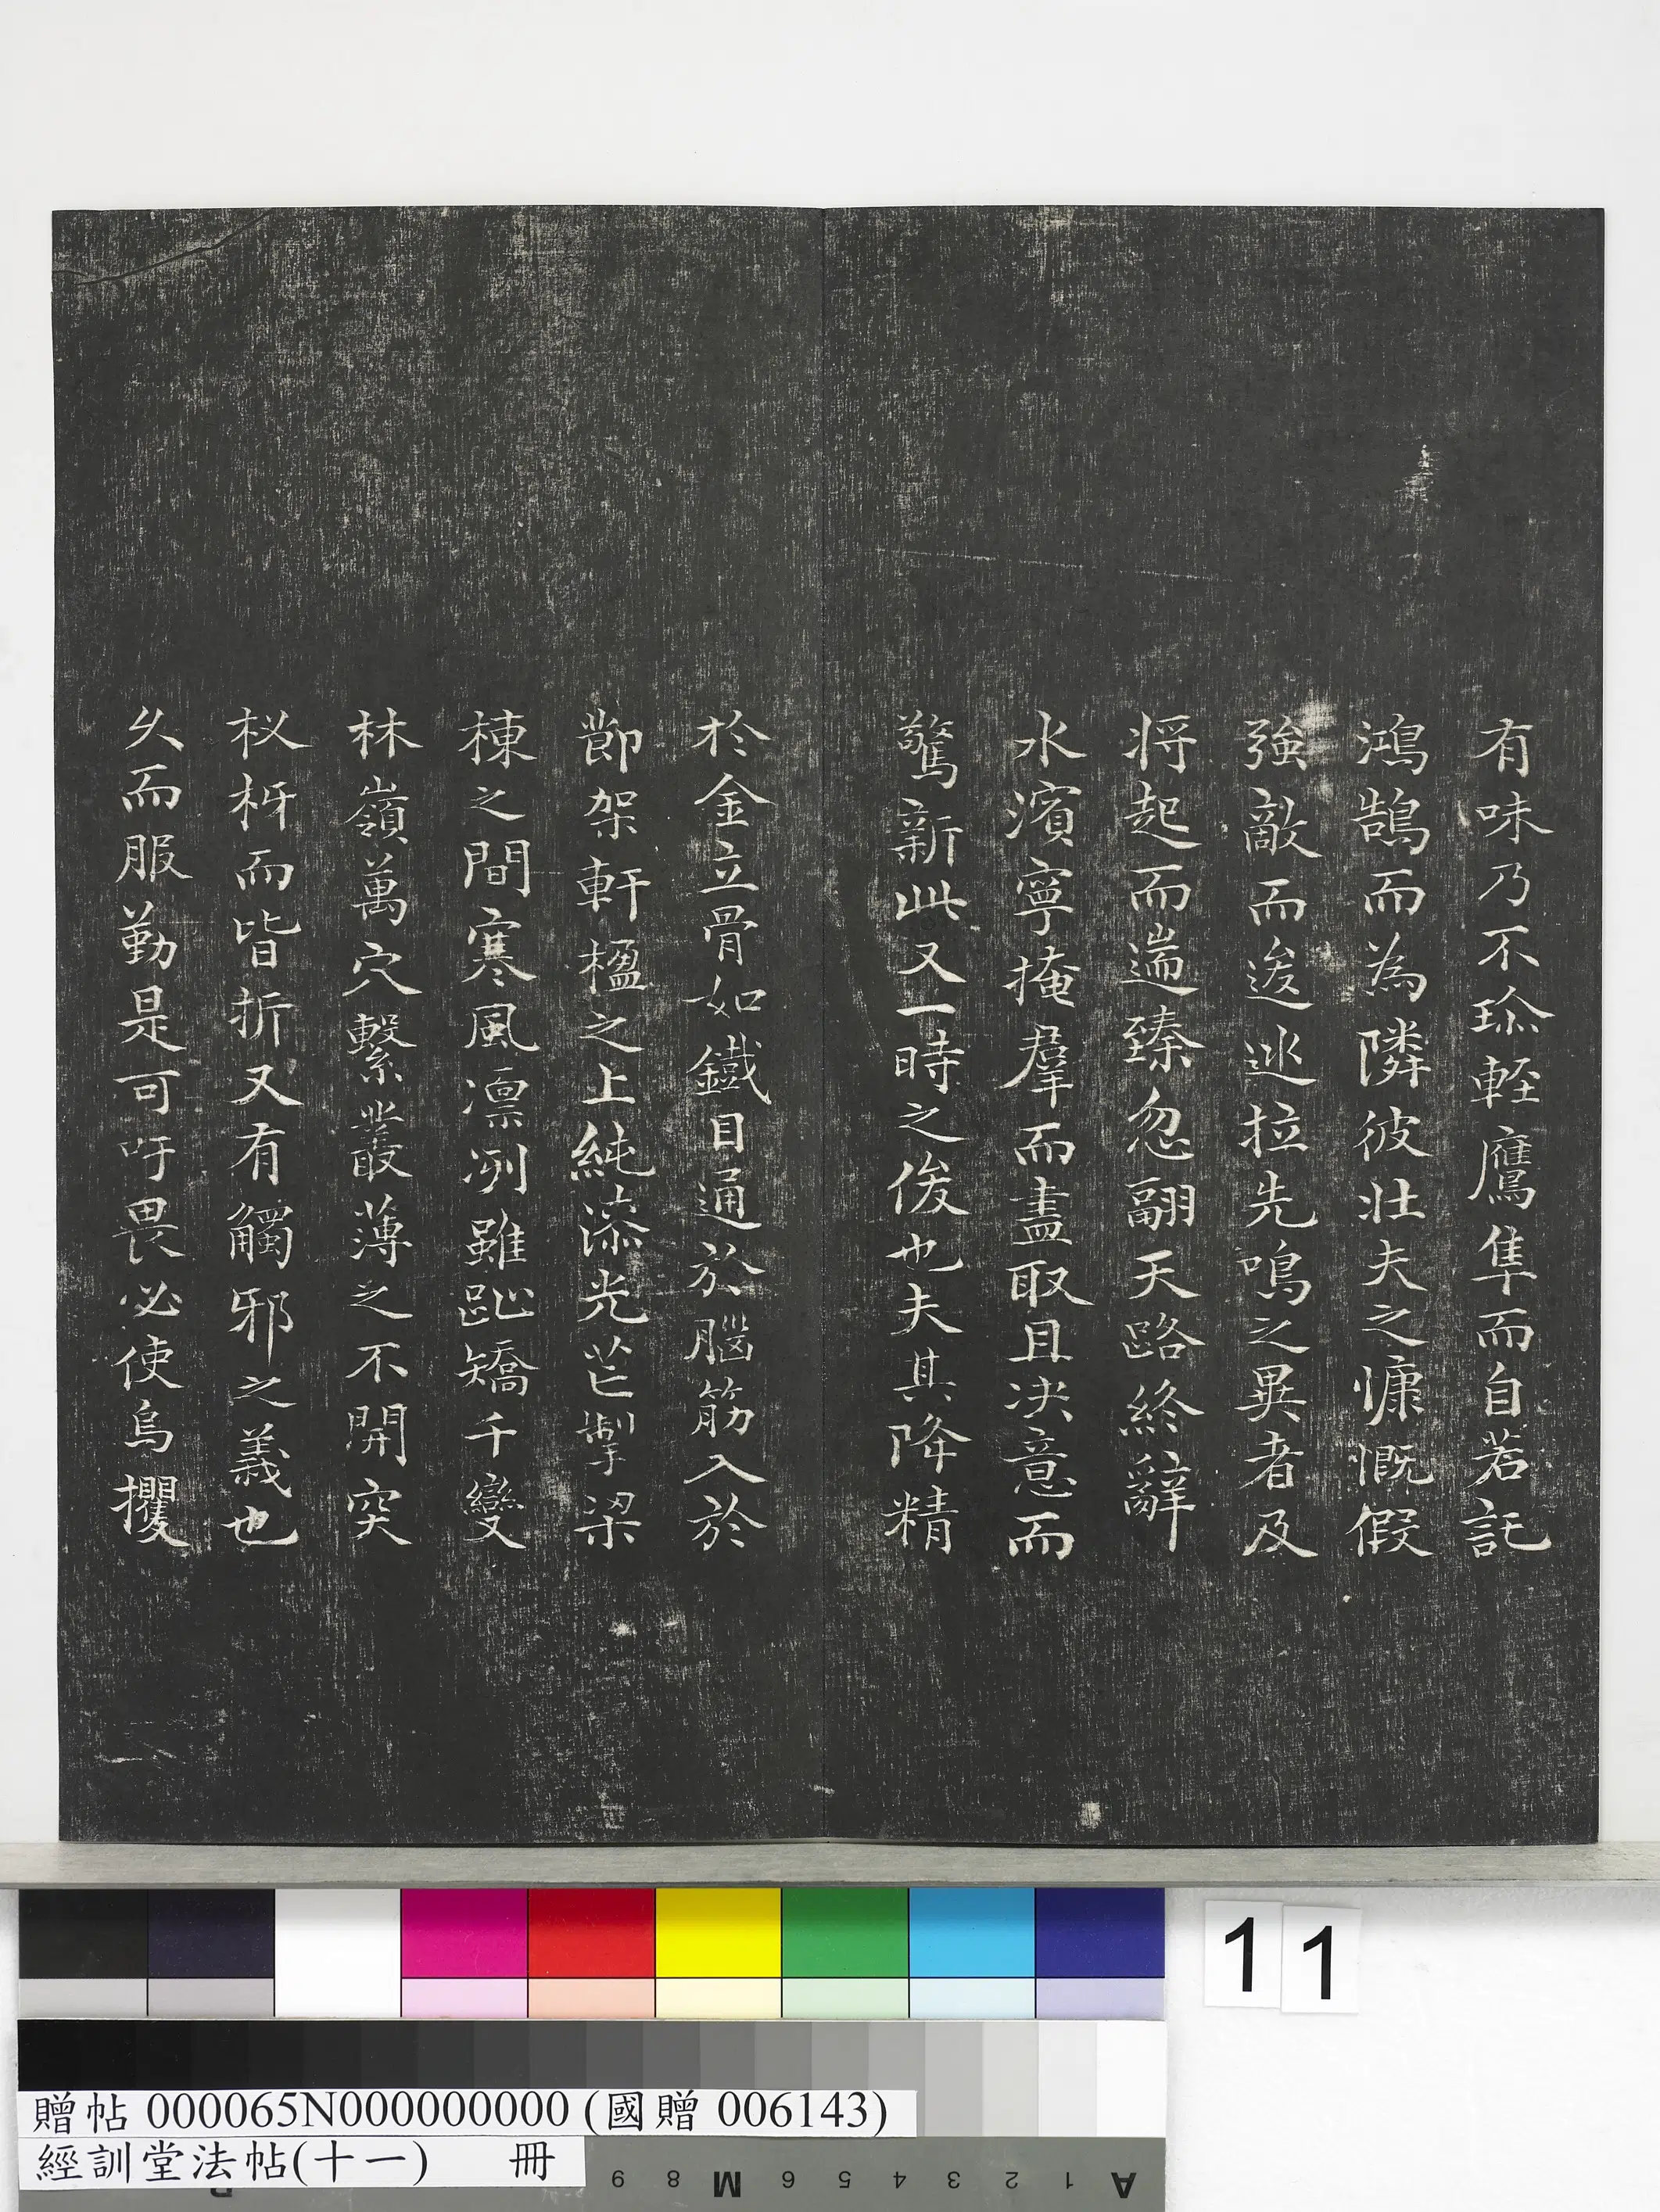 有味乃不珎輕鷹隼而自若託
鴻鵠而為隣彼壯夫之慷慨假
強敵而逡巡拉先鳴之異者及
将起而遄臻忽翮天路終辭
水濱寧掩羣而盡取且决意而
驚新此又一時之俊也夫其降精
於金立骨如鐵目通於腦筋入於
節架軒楹之上純漆光芒掣梁
棟之間寒風凛冽雖趾矯千變
林嶺萬穴繫叢薄之不開突
杈枒而皆折又有觸邪之義也
久而服勤是可吁畏必使烏攫
贈帖 000065N000000000 (國贈 006143)
經訓堂法帖(十一) 冊
11
9 8 M 6 5 4 3 2 1 A